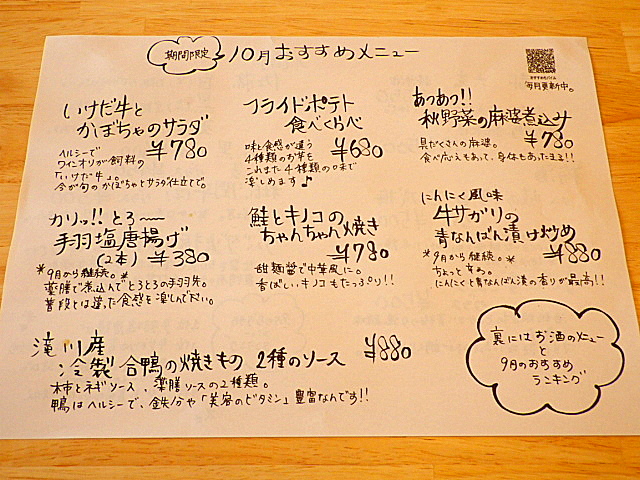 期間限定
10月おすすめメニュー
おすすめタイム
毎月更新中。
いけだ牛と
かぼちゃのサラダ
¥780
ヘルシーで
ワインオリが飼料の
「いけだ牛」。
今が旬のかぼちゃとサラダ仕立てで。
フライドポテト
食べくらべ
¥680
味と食感が違う
4種類のお芋を
これまた4種類の味で
楽しめます♪
あつあつ!!
秋野菜の麻婆煮込み
¥780
具だくさんの麻婆。
食べ応えもあって、身体もあったまる!!
カリッ!! とろ〜〜
手羽塩唐揚げ
(2本) ¥380
*9月から継続。*
薬膳で煮込んでとろとろの手羽先。
普段とは違った食感を楽しんで下さい。
鮭とキノコの
ちゃんちゃん焼き
¥780
甜麺醤で中華風に。
香ばしいキノコもたっぷり!!
にんにく風味
牛サガリの
青なんばん漬け炒め
*9月から継続。* ¥880
ちょっと辛め。
にんにくと青なんばん漬の香りが最高!!
滝川産
冷製 合鴨の焼きもの 2種のソース ¥880
柿とネギソース、薬膳ソースの2種類。
鴨はヘルシーで、鉄分や「美容のビタミン」豊富なんです!!
裏にはお酒のメニュー
と
9月のおすすめ
ランキング